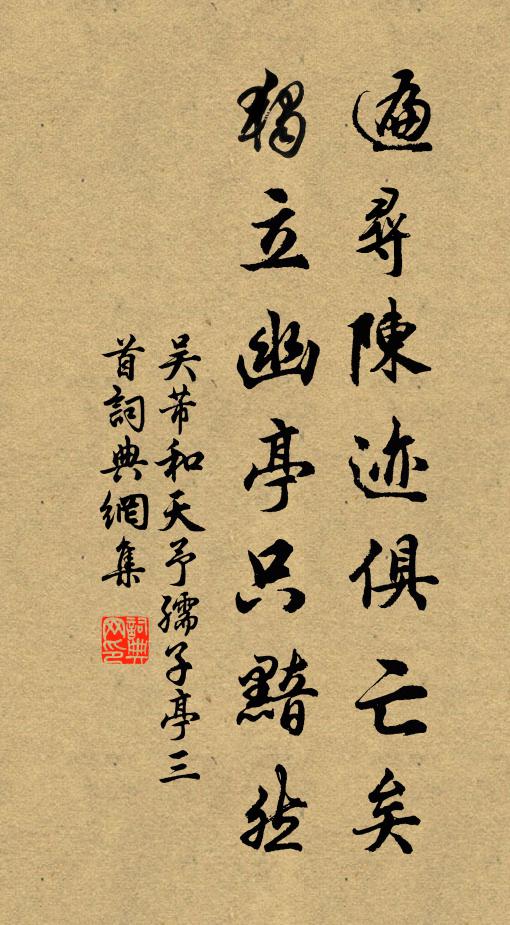 遍尋陳迹俱亡矣
獨立幽亭只黯然
吴芾和天予孺子亭三
首詞典網集
詞典网印